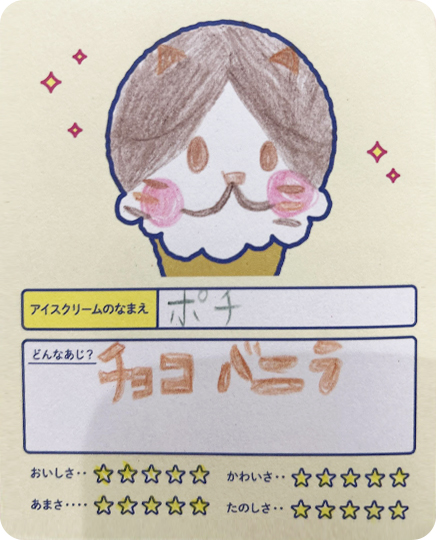 アイスクリームのなまえ ポチ
どんなあじ? チョコ バニラ
おいしさ‥ ★★★★★ かわいさ‥ ★★★★★
あまさ‥‥ ★★★★★ たのしさ‥ ★★★★★